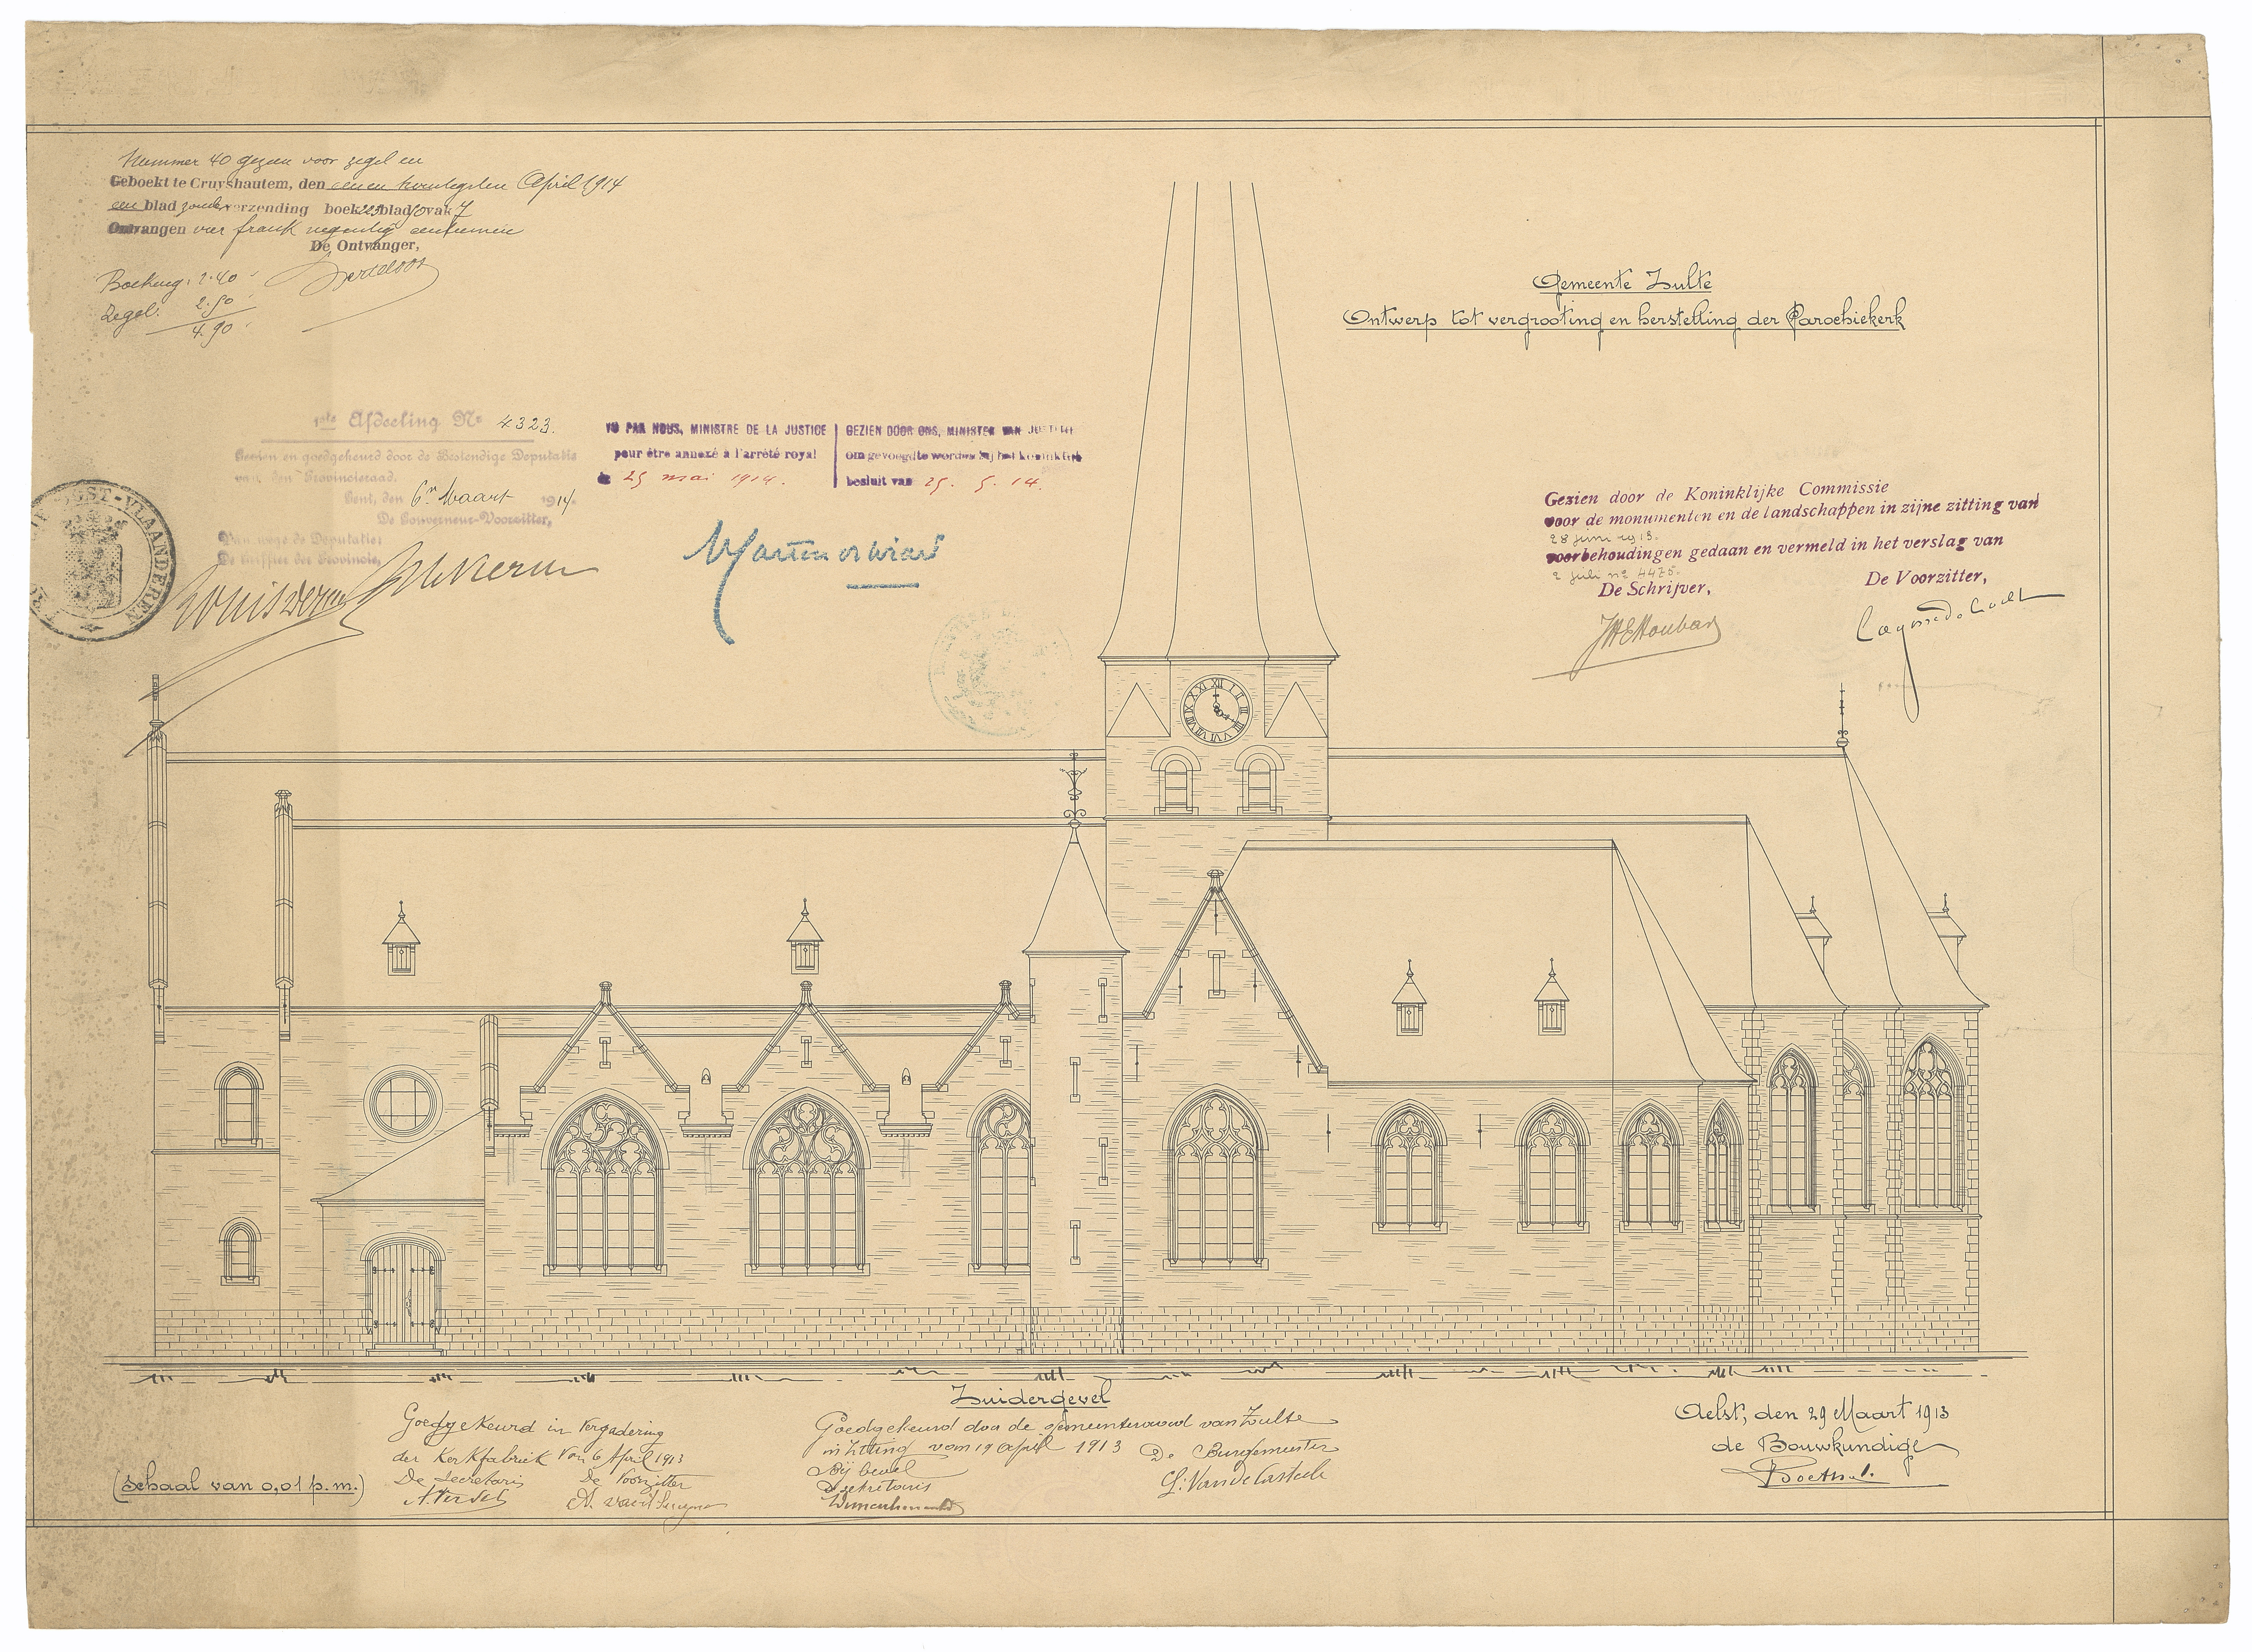 Nummer 40 gezien voor zegel en
Geboekt te Cruyshautem, den eenen twintigsten April 1914
een blad zonder verzending boek 223 blad 90 vak 7
Ontvangen vier frank negentig centiemen
De Ontvanger,
Boeking: 2.40
Zegel: 2.50
4.90
Gemeente Zulte
Ontwerp tot vergrooting en herstelling der Parochiekerk
1ste Afdeeling Nr 4323.
Gezien en goedgekeurd door de Bestendige Deputatie
van den Provincieraad.
Gent, den 6n Maart 1914.
De Gouverneur-Voorzitter,
Van wege de Deputatie:
De Griffier der Provincie,
OOST-VLAANDEREN
VU PAR NOUS, MINISTRE DE LA JUSTICE
pour être annexé à l'arrêté royal
25 mai 1914.
GEZIEN DOOR ONS, MINISTER VAN JUSTITIE
om gevoegd te worden bij het koninklijk
besluit van 25. 5. 14.
Gezien door de Koninklijke Commissie
voor de monumenten en de landschappen in zijne zitting van
28 juni 1913.
voorbehoudingen gedaan en vermeld in het verslag van
2 juli no 4475.
De Schrijver,
De Voorzitter,
Zuidergevel
Goedgekeurd in vergadering
der Kerkfabriek van 6 April 1913
De Secretaris De Voorzitter
Goedgekeurd door de gemeenteraad van Zulte
in zitting van 19 april 1913 De Burgemeester
Bij bevel
De sekretaris
G. Van de Casteele
Aelst, den 29 Maart 1913
de Bouwkundige
(schaal van 0,01 p.m.)